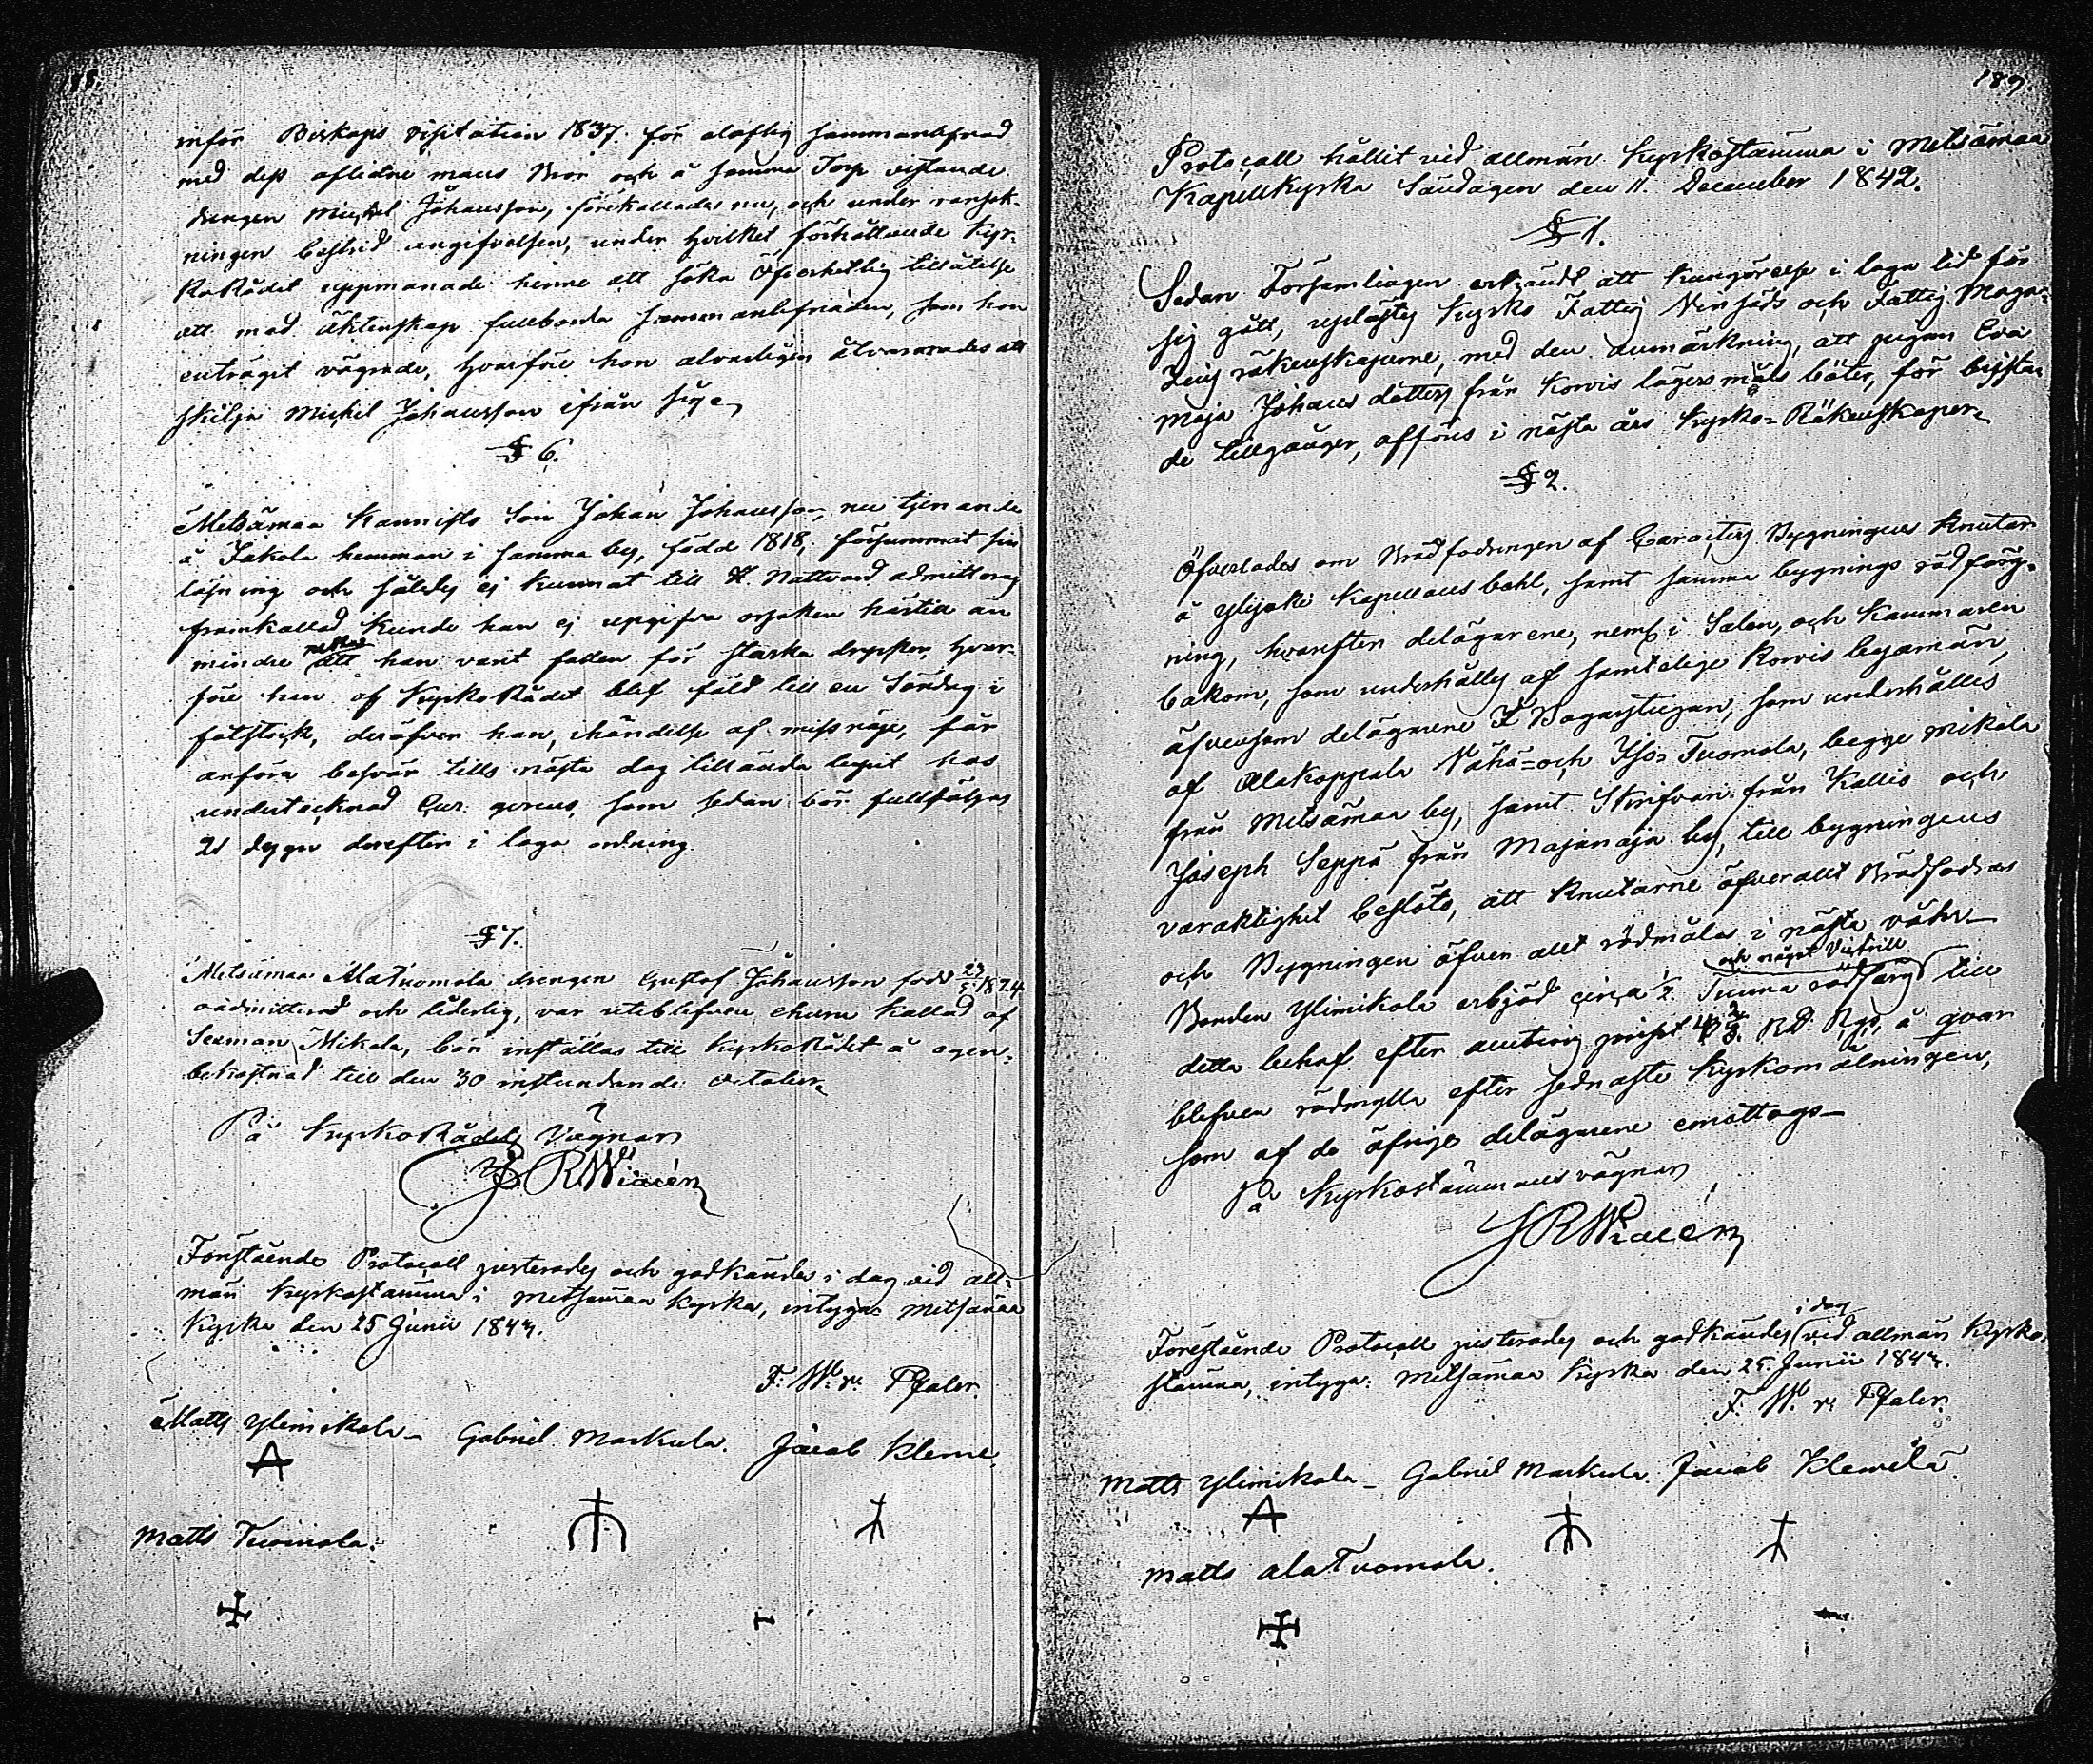 inför Biskops visitation 1837. för oloflig sammanlefnad
med dess aflidne mans Bror och å samma Torp vistande
drengen Michel Johansson, förekallades nu, och under ransak-
ningen bestred angifvelsen, under hvilket förhållande Kyr-
koRådet uppmanade henne att söka Öfverhetlig tillåtelse
att med äktenskap fullborda sammanlefnaden, som hon
enträget vägrade, hvarföre hon alvarligen åtvarnades att
skilja Michel Johansson ifrån sig
§ 6.
Metsämaa Kannisto Son Johan Johansson, nu tjenande
å Jakola hemman i samma by, född 1818, försummat sin
läsning och således ej kunnat till H. Nattvard admitteras
framkallad kunde han ej uppgifva orsaken härtill än
mindre att han varit fallen för starka drycker, hvar-
före han af KyrkoRådet blef fäld till en Söndag i
fotstock, deröfver han, i händelse af missnöje, får
anföra besvär tills nästa dag till ända lupit hos
undertecknad Cur. gerens, som sedan bör fullföljas
21 dygn derefter i laga ordning.
§ 7.
Metsämaa AlaTuomola drengen Gustaf Johansson född 23/5 1824
oadmitterad och liderlig, var utebliven ehuru kallad af
Sexman Mikola, bör inställas till KyrkoRådet å egen
bekostnad till den 30 instundande October
På KyrkoRådets Vägnar
J R Widén
Förestående Protocoll justerades och godkändes i dag vid all-
män Kyrkostämma i Metsämaa Kyrka, intyga: Metsämaa
Kyrka den 25 Junii 1843.
F. W. v. Pfaler.
Matts Ylimikola - Gabriel Markula. Jacob Kleme
A
Matts Tuomola.
189
Protocoll hållit vid allmän Kyrkostämma i Metsämaa
Kapellkyrka Söndagen den 11. December 1842.
§ 1.
Sedan Församlingen erkändt att kungörelse i laga tid för
sig gått, upplästes Kyrko Fattig och Fattig Maga-
zins räkenskaperne, med den anmärkning, att pigan Eva
Maja Johans dotters från Korvis lägersmåls böter, för brista
de tillgånger, afföres i nästa års Kyrko-Räkenskaper
§ 2.
Öfverlades om Brädfodringen af Caracters Bygningens knutar
å Ylijoki Kapellans bohl, samt samma bygnings rödfärg-
ning, hvarefter delägarene, neml. i Salen, och Kammaren
bakom, som underhålles af samtelige Korvis byamän,
äfvensom delägarene i Bagarstugan, som underhålles
af Alakoppala Nähä- och Iso-Tuomola, begge Mikola
från Metsämaa by, samt Skrifvari från Kallis och
Joseph Seppä från Majanoja by, till bygningens
varaktighet beslöto, att knutarne öfverallt Brädfodras
och Bygningen äfven allt rödmålas i nästa våhr
och något Victrill
Bonden Ylimikola erbjöd circa 1/2 Tunna rödfärg till
detta behof efter auctions priset 4 2/3. RD. Rgs, å qvar
blefven rödmylla efter sednaste Kyrkomålningen,
som af de öfrige delägarene emottogs
På Kyrkostämmans vägnar
J R Widén
i dag
Förestående Protocoll justerades och godkändes vid allmän Kyrko-
stämma, intyga: Metsämaa Kyrka den 25. Junii 1843.
F. W. v. Pfaler.
Matts Ylimikola - Gabriel Markula. Jacob Klemelä.
A
Matts alaTuomola.